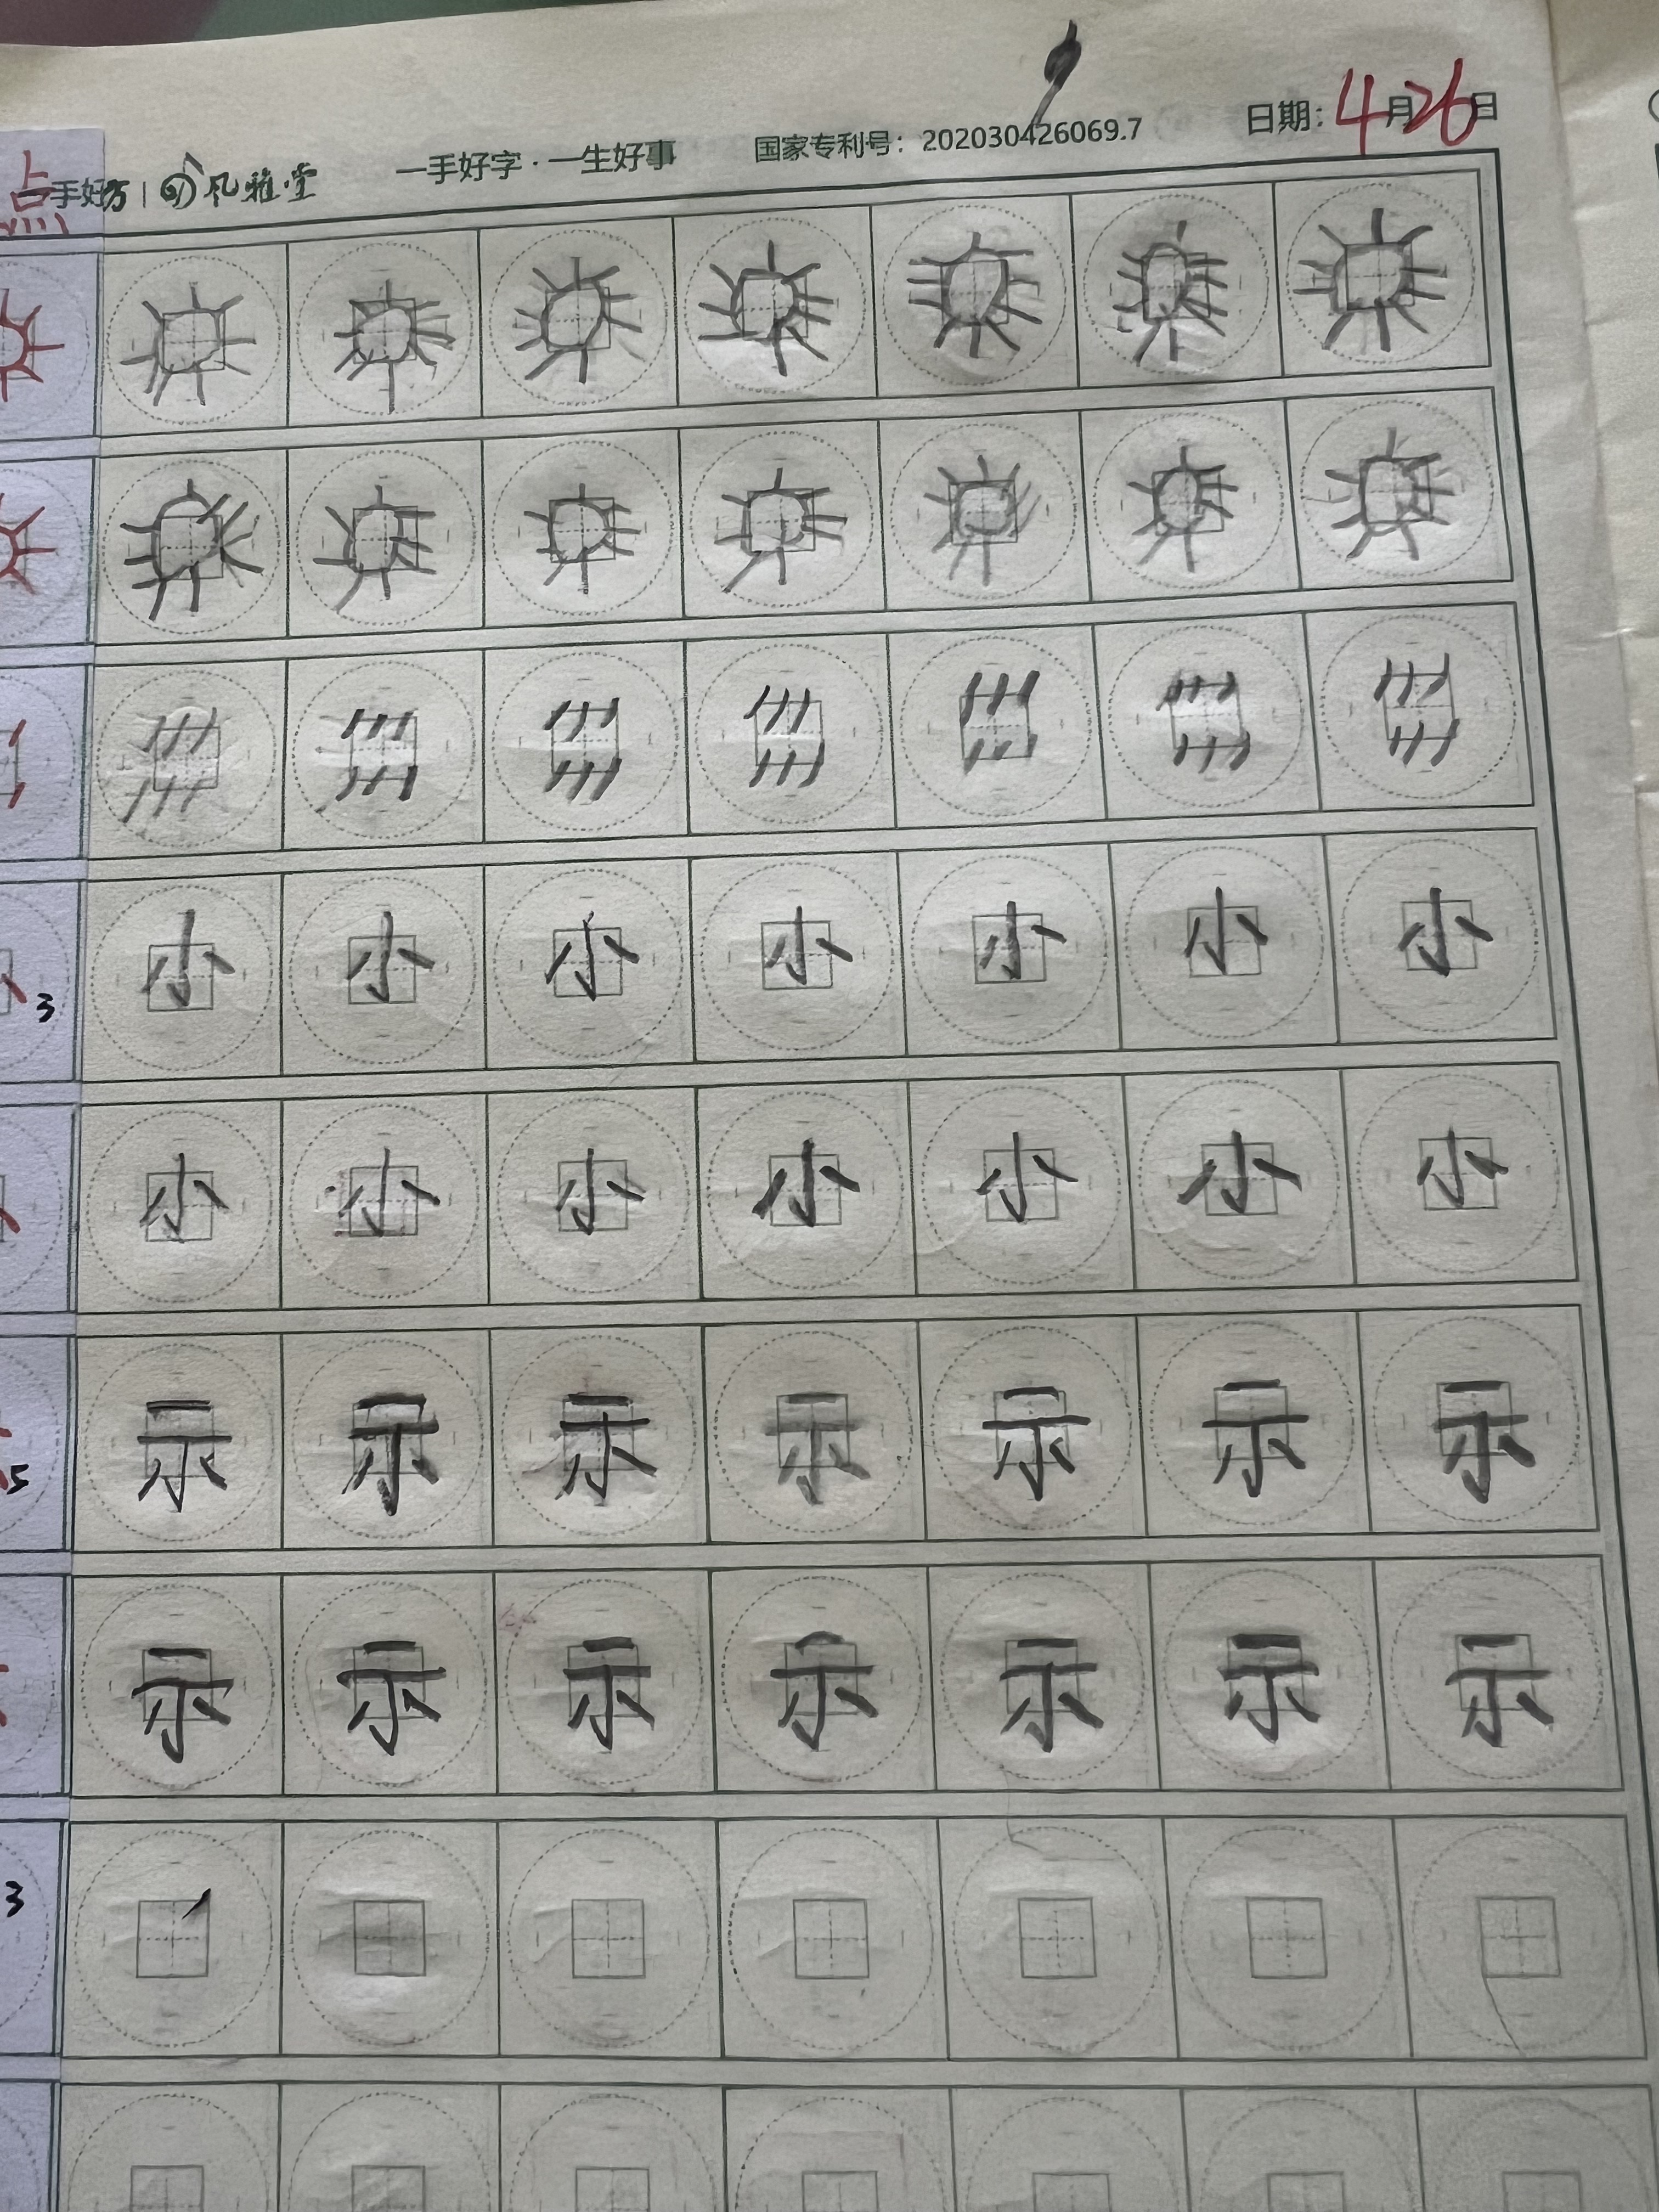 点
一手好字·一生好事 国家专利号：202030426069.7 日期：4月26日
手好 风雅堂
小 小 小 小 小 小 小
3
小 小 小 小 小 小 小
示 示 示 示 示 示 示
5
示 示 示 示 示 示 示
3